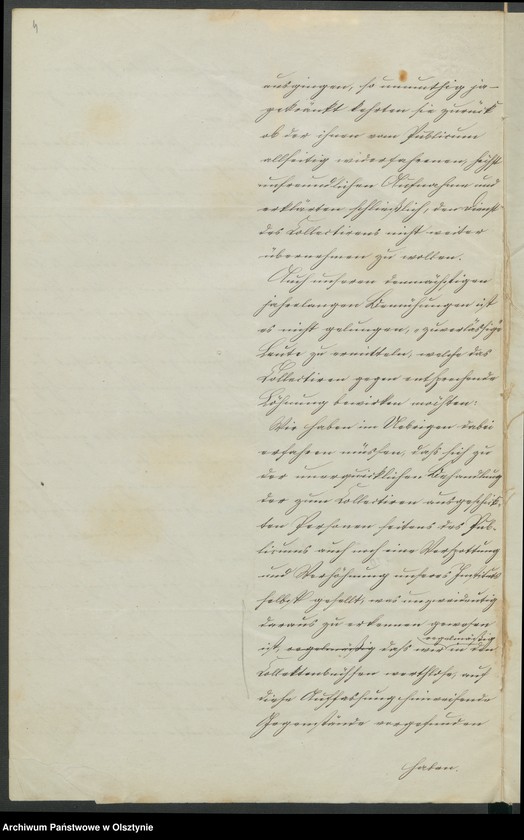 4
ausgingen, so unmuthig ja
gekränkt kehrten sie zurück
ob der ihnen vom Publicum
allseitig widerfahrenen, höchst
unfreundlichen Aufnahme und
erklärten schließlich, den Dienst
des Collectirens nicht weiter
übernehmen zu wollen.
Auch unseren demnächstigen
jahrelangen Bemühungen ist
es nicht gelungen, zuverlässige
Leute zu ermitteln, welche das
Collectiren gegen entsprechende
Löhnung bewirken möchten.
Wir haben im Uebrigen dabei
erfahren müssen, daß sich zu
der unerquicklichen Behandlung
der zum Collectiren ausgeschick-
ten Personen seitens des Pub-
licums auch noch eine Verspottung
und Verhöhnung unseres Instituts
selbst gesellt, was unzweideutig
daraus zu erkennen gewesen
regelmäßig
ist, regelmäßig daß wir in den
Collektenbüchsen werthlose, auf
diese Auffassung hinweisende
Gegenstände vorgefunden
haben.
Archiwum Państwowe w Olsztynie